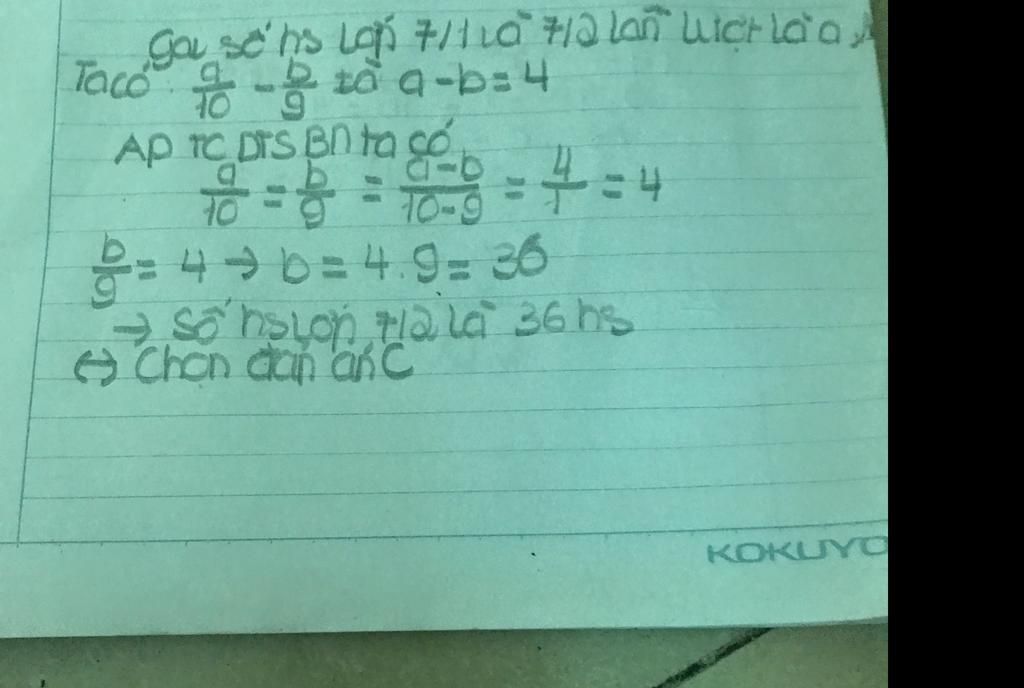 Gọi số hs lớp 7/1 và 7/2 lần lượt là a,
Ta có: a/10 - b/9 và a-b=4
AD TC DTSBN ta có
a/10 = b/9 = a-b/10-9 = 4/1 = 4
b/9 = 4 → b = 4.9 = 36
→ Số hs lớp 7/2 là 36 hs
↔ Chọn đán án C
KOKUYO